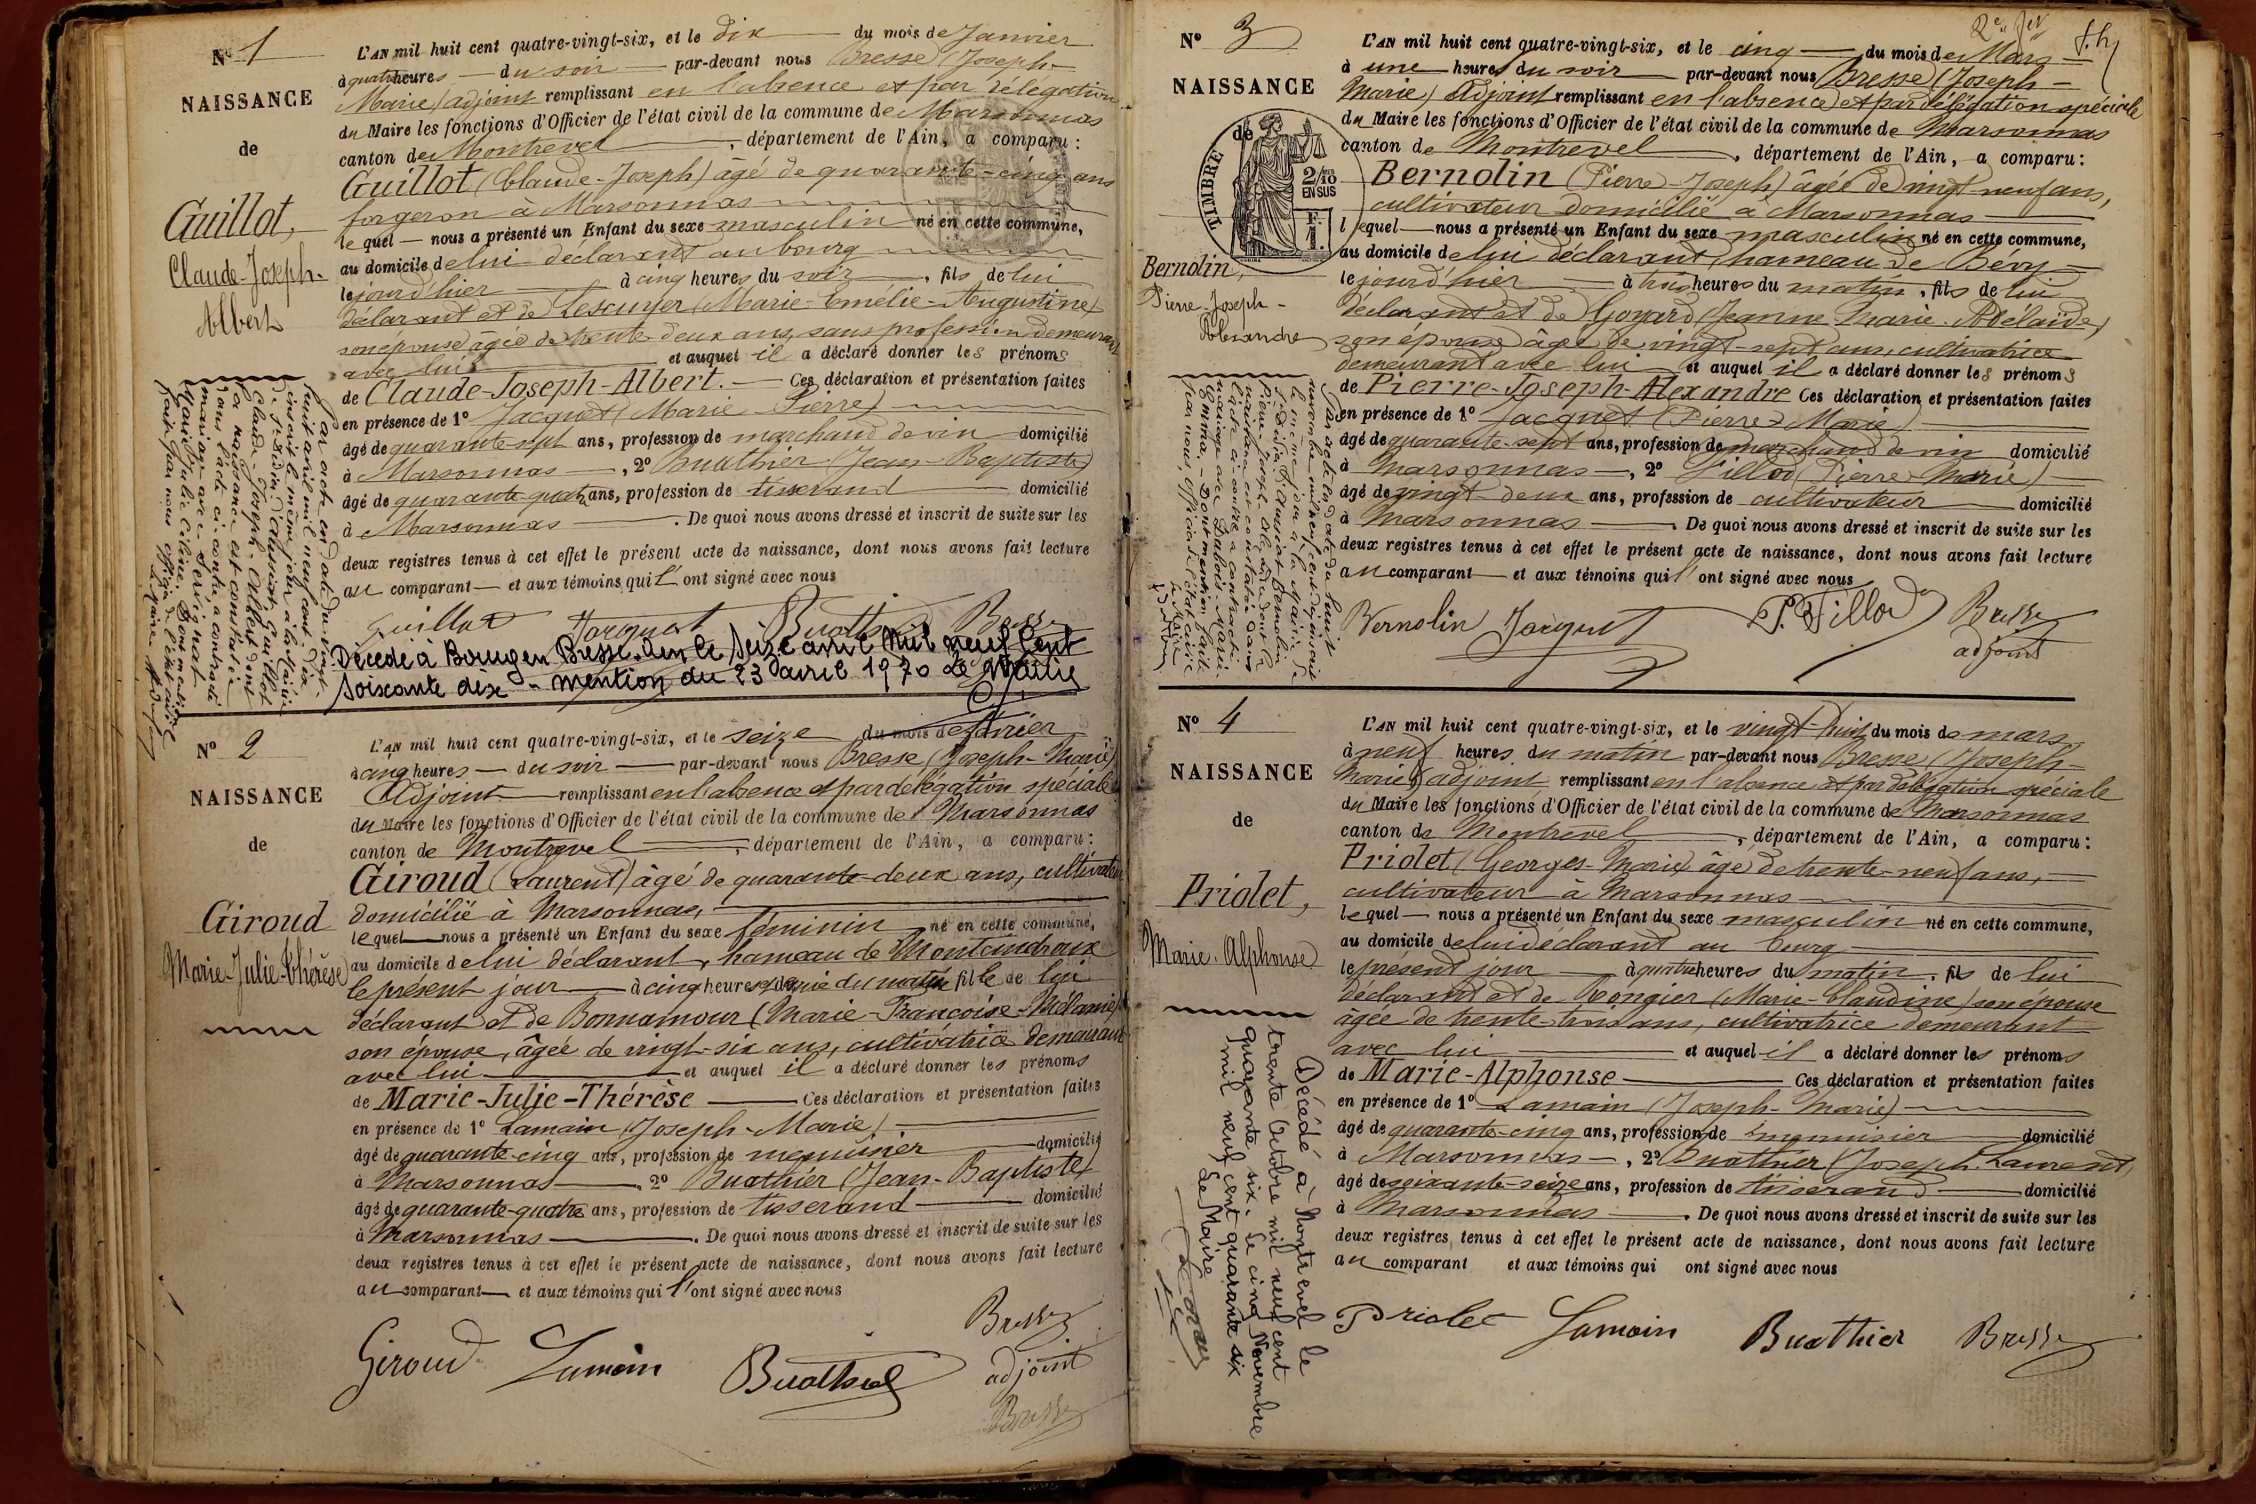 N° 1
NAISSANCE
de
Guillot,
Claude-Joseph-
Albert
L'AN mil huit cent quatre-vingt-six, et le dix du mois de Janvier
à quatre heures du soir par-devant nous Bresse (Joseph-
Marie) adjoint remplissant en l'absence et par délégation
du Maire les fonctions d'Officier de l'état civil de la commune de Marsonnas
canton de Montrevel, département de l'Ain, a comparu:
Guillot (Claude-Joseph) âgé de quarante-cinq ans
forgeron à Marsonnas
lequel nous a présenté un Enfant du sexe masculin né en cette commune,
au domicile de lui déclarant au bourg
le jour d'hier à cinq heures du soir, fils de lui
déclarant et de Lescuyer (Marie-Emélie-Augustine)
son épouse âgée de trente-deux ans, sans profession demeurant
avec lui et auquel il a déclaré donner les prénoms
de Claude-Joseph-Albert. Ces déclaration et présentation faites
en présence de 1° Jacquet (Marie-Pierre)
âgé de quarante-sept ans, profession de marchand de vin domicilié
à Marsonnas, 2° Buathier (Jean-Baptiste)
âgé de quarante-quatre ans, profession de tisserand domicilié
à Marsonnas. De quoi nous avons dressé et inscrit de suite sur les
deux registres tenus à cet effet le présent acte de naissance, dont nous avons fait lecture
au comparant et aux témoins qui l'ont signé avec nous
Guillot Jacquet Buathier Bresse
Décédé à Bourg en Bresse. Ain le seize avril Mil neuf Cent
soixante dix - mention du 23 avril 1970 Le Maire
Par acte en date du vingt-
huit avril mil neuf cent dix
inscrit le même jour à la Mairie
de St Didier d'Aussiat, Guillot
Claude-Joseph-Albert dont
la naissance est constatée
dans l'acte ci-contre a contracté
mariage avec
Marie Julie Céline. Dont mention
faite par nous officier de l'état civil
Le Maire
N° 2
NAISSANCE
de
Giroud
Marie-Julie-Thérèse
L'AN mil huit cent quatre-vingt-six, et le seize du mois de février
à cinq heures du soir par-devant nous Bresse (Joseph-Marie)
Adjoint remplissant en l'absence et par délégation spéciale
du Maire les fonctions d'Officier de l'état civil de la commune de Marsonnas
canton de Montrevel, département de l'Ain, a comparu:
Giroud (Laurent) âgé de quarante-deux ans, cultivateur
domicilié à Marsonnas,
lequel nous a présenté un Enfant du sexe féminin né en cette commune,
au domicile de lui déclarant, hameau de
le présent jour à cinq heures du matin fille de lui
déclarant et de Bonnamour (Marie-Françoise-Mélanie)
son épouse, âgée de vingt-six ans, cultivatrice demeurant
avec lui et auquel il a déclaré donner les prénoms
de Marie-Julie-Thérèse Ces déclaration et présentation faites
en présence de 1° Lamain (Joseph-Marie)
âgé de quarante-cinq ans, profession de menuisier domicilié
à Marsonnas 2° Buathier (Jean-Baptiste)
âgé de quarante-quatre ans, profession de tisserand domicilié
à Marsonnas. De quoi nous avons dressé et inscrit de suite sur les
deux registres tenus à cet effet le présent acte de naissance, dont nous avons fait lecture
au comparant et aux témoins qui l'ont signé avec nous
Giroud Lamain Buathier Bresse
adjoint
Bresse
2e
N° 3
NAISSANCE
de
TIMBRE
2/10
EN SUS
Bernolin,
Pierre-Joseph-
Alexandre
L'AN mil huit cent quatre-vingt-six, et le cinq du mois de Mars
à une heure du soir par-devant nous Bresse (Joseph-
Marie) Adjoint remplissant en l'absence et par délégation spéciale
du Maire les fonctions d'Officier de l'état civil de la commune de Marsonnas
canton de Montrevel, département de l'Ain, a comparu:
Bernolin (Pierre-Joseph) âgé de vingt neuf ans,
cultivateur domicilié à Marsonnas
lequel nous a présenté un Enfant du sexe masculin né en cette commune,
au domicile de lui déclarant, hameau de Bévy
le jour d'hier à trois heures du matin, fils de lui
déclarant et de Goyard (Jeanne-Marie-Adélaïde)
son épouse âgée de vingt-sept ans, cultivatrice
demeurant avec lui et auquel il a déclaré donner les prénoms
de Pierre-Joseph-Alexandre Ces déclaration et présentation faites
en présence de 1° Jacquet (Pierre-Marie)
âgé de quarante-sept ans, profession de marchand de vin domicilié
à Marsonnas, 2° Fillod (Pierre-Marie)
âgé de vingt deux ans, profession de cultivateur domicilié
à Marsonnas De quoi nous avons dressé et inscrit de suite sur les
deux registres tenus à cet effet le présent acte de naissance, dont nous avons fait lecture
au comparant et aux témoins qui l'ont signé avec nous
Bernolin Jacquet P. Fillod Bresse
adjoint
Par acte en date du huit
novembre mil neuf cent
le même jour à la mairie de
St Didier d'Aussiat Bernolin
Pierre-Joseph-Alexandre dont la
naissance est constatée dans
l'acte ci-contre a contracté
mariage avec Dubois Marie-
Emma. Dont mention faite
par nous officier de l'état civil
Le Maire
N° 4
NAISSANCE
de
Priolet,
Marie-Alphonse
L'AN mil huit cent quatre-vingt-six, et le vingt-huit du mois de mars
à neuf heures du matin par-devant nous Bresse (Joseph-
Marie) adjoint remplissant en l'absence et par délégation spéciale
du Maire les fonctions d'Officier de l'état civil de la commune de Marsonnas
canton de Montrevel, département de l'Ain, a comparu:
Priolet (Georges-Marie) âgé de trente-neuf ans,
cultivateur à Marsonnas
lequel nous a présenté un Enfant du sexe masculin né en cette commune,
au domicile de lui déclarant au bourg
le présent jour à quatre heures du matin, fils de lui
déclarant et de Rongier (Marie-Claudine) son épouse
âgée de trente-trois ans, cultivatrice demeurant
avec lui et auquel il a déclaré donner les prénoms
de Marie-Alphonse Ces déclaration et présentation faites
en présence de 1° Lamain (Joseph-Marie)
âgé de quarante-cinq ans, profession de menuisier domicilié
à Marsonnas, 2° Buathier (Joseph-Laurent)
âgé de soixante-seize ans, profession de tisserand domicilié
à Marsonnas. De quoi nous avons dressé et inscrit de suite sur les
deux registres tenus à cet effet le présent acte de naissance, dont nous avons fait lecture
au comparant et aux témoins qui ont signé avec nous
Priolet Lamain Buathier Bresse
Décédé à Montrevel le
trente Octobre mil neuf cent
quarante six. Le cinq Novembre
mil neuf cent quarante six
Le Maire